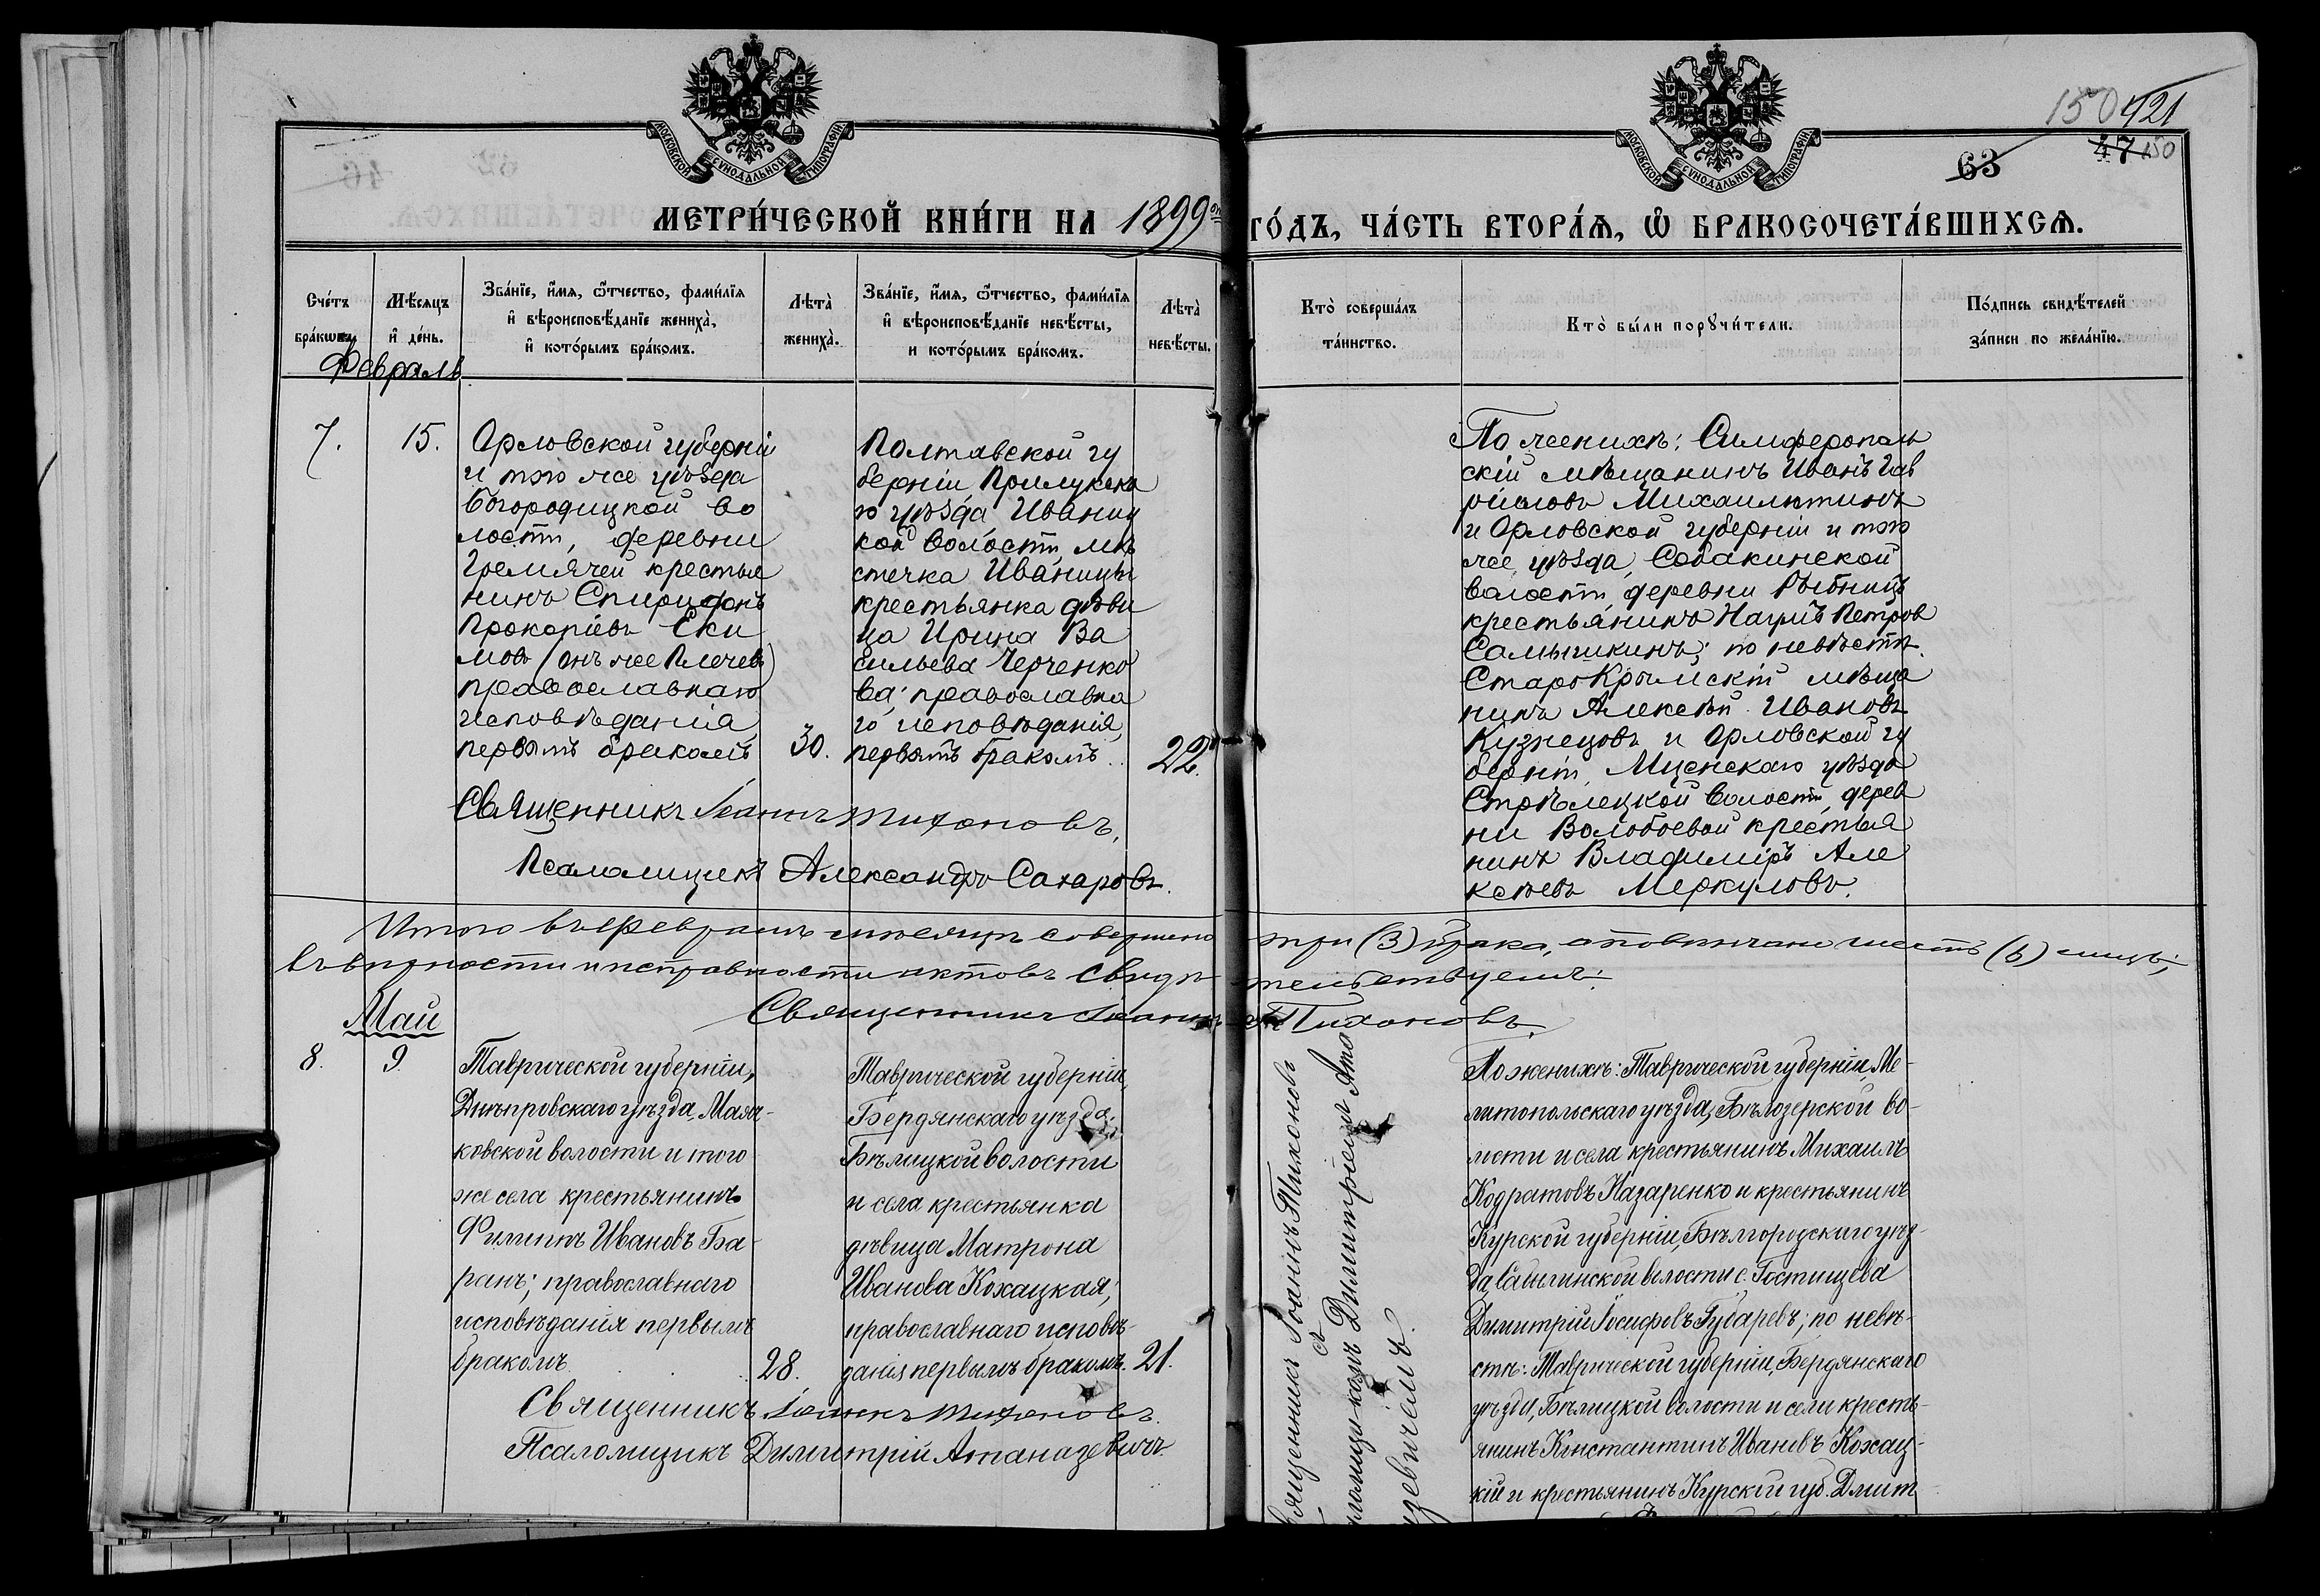 МОСКОВСКОЙ СѴНОДАЛЬНОЙ ТИПОГРАФІИ.
МОСКОВСКОЙ СѴНОДАЛЬНОЙ ТИПОГРАФІИ.
150 421
63 47 150
МЕТРИ́ЧЕСКОЙ КНИ́ГИ НА 1899 ГО́ДЪ, ЧА́СТЬ ВТОРА́Ѧ, Ѡ҆ БРАКОСОЧЕТА́ВШИХСѦ.
Сче́тъ
бра́кѡвъ.
Мѣ́сяцъ
и҆ де́нь.
Зва́нїе, и҆́мя, ѻ҆́тчество, фами́лїя
и҆ вѣроисповѣ́данїе жениха̀,
и҆ кото́рымъ бра́комъ.
Лѣта̀
жениха̀.
Зва́нїе, и҆́мя, ѻ҆́тчество, фами́лїя
и҆ вѣроисповѣ́данїе невѣ́сты,
и кото́рымъ бра́комъ.
Лѣта̀
невѣ́сты.
Кто̀ соверша́лъ
та́инство.
Кто̀ бы́ли порꙋчи́тели.
По́дпись свидѣ́телей
за́писи по жела́нїю.
Февраль
7.
15.
Орловской губерніи
и того же уѣзда
Богородицкой во
лости, деревни
Гремячей крестья
нинъ Спиридонъ
Прокопіевъ Еки
мовъ (онъ же Плечевъ)
православнаго
исповѣданія,
первымъ бракомъ
30.
Полтавской гу
берніи Прилукска
го уѣзда Иваниц
кой волости, мѣ
стечка Иваницы
крестьянка дѣви
ца Ирина Ва
сильева Черченко
ва; православна
го исповѣданія,
первымъ бракомъ.
22.
По женихѣ: Симферополь
скій мѣщанинъ Иванъ Гав
риловъ Михаилютинъ
и Орловской губерніи и того
же уѣзда, Собакинской
волости деревни Рыбницъ
крестьянинъ Наумъ Петров
Самышкинъ; по невѣстѣ.
СтароКрымскій мѣща
нинъ Алексѣй Ивановъ
Кузнецовъ и Орловской гу
берніи, Мценскаго уѣзда
Стрѣлецкой волости, дерев
ни Волобоевой крестья
нинъ Владиміръ Але
ксѣевъ Меркуловъ.
Священникъ Іоаннъ Тихоновъ.
Псаломщикъ Александръ Сахаровъ.
Итого въ Февралѣ мѣсяцѣ совершено три (3) брака, а повѣнчано шесть (6) лицъ;
въ вѣрности и исправности актовъ свидѣтельствуемъ:
Священникъ Іоаннъ Тихоновъ.
Май
8.
9.
Таврической губерніи,
Днѣпровскаго уѣзда, Маяч-
ковской волости и того
же села крестьянинъ
Филиппъ Ивановъ Ба-
ранъ; православнаго
исповѣданія первымъ
бракомъ.
28.
Таврической губерніи,
Бердянскаго уѣзда,
Бѣлицкой волости
и села крестьянка
дѣвица Матрона
Иванова Кохацкая;
православнаго исповѣ-
данія первымъ бракомъ.
21.
Священникъ Іоаннъ Тихоновъ
съ
псаломщикомъ Димитріемъ Ата
зевичемъ.
По женихѣ: Таврической губерніи, Ме-
литопольскаго уѣзда, Бѣлозерской во-
лости и села крестьянинъ Михаилъ
Кодратовъ Назаренко и крестьянинъ
Курской губерніи, Бѣлгородскаго уѣз-
да, Сашинской волости с. Гостищева
Димитрій Іосифовъ Губаревъ; по невѣ-
стѣ: Таврической губерніи, Бердянскаго
уѣзда, Бѣлицкой волости и села кресть-
янинъ Константинъ Ивановъ Кохац-
кій и крестьянинъ Курской губ. Дмит
Священникъ Іоаннъ Тихоновъ.
Псаломщикъ Димитрій Атаназевичъ.